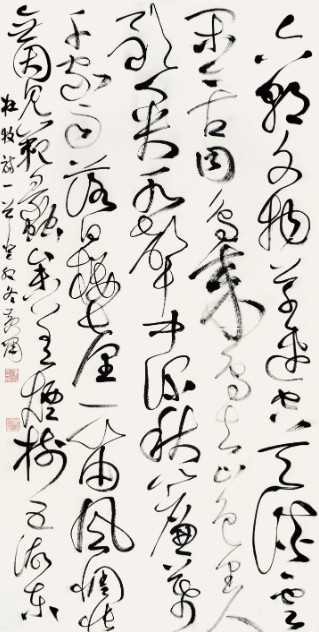 六朝文物草連空天淡雲
閑今古同鳥來鳥去山色里人
歌人哭水聲中深秋簾幕
千家雨落日樓臺一笛風惆悵
無因見範蠡參差煙樹五湖東
杜牧詩一首